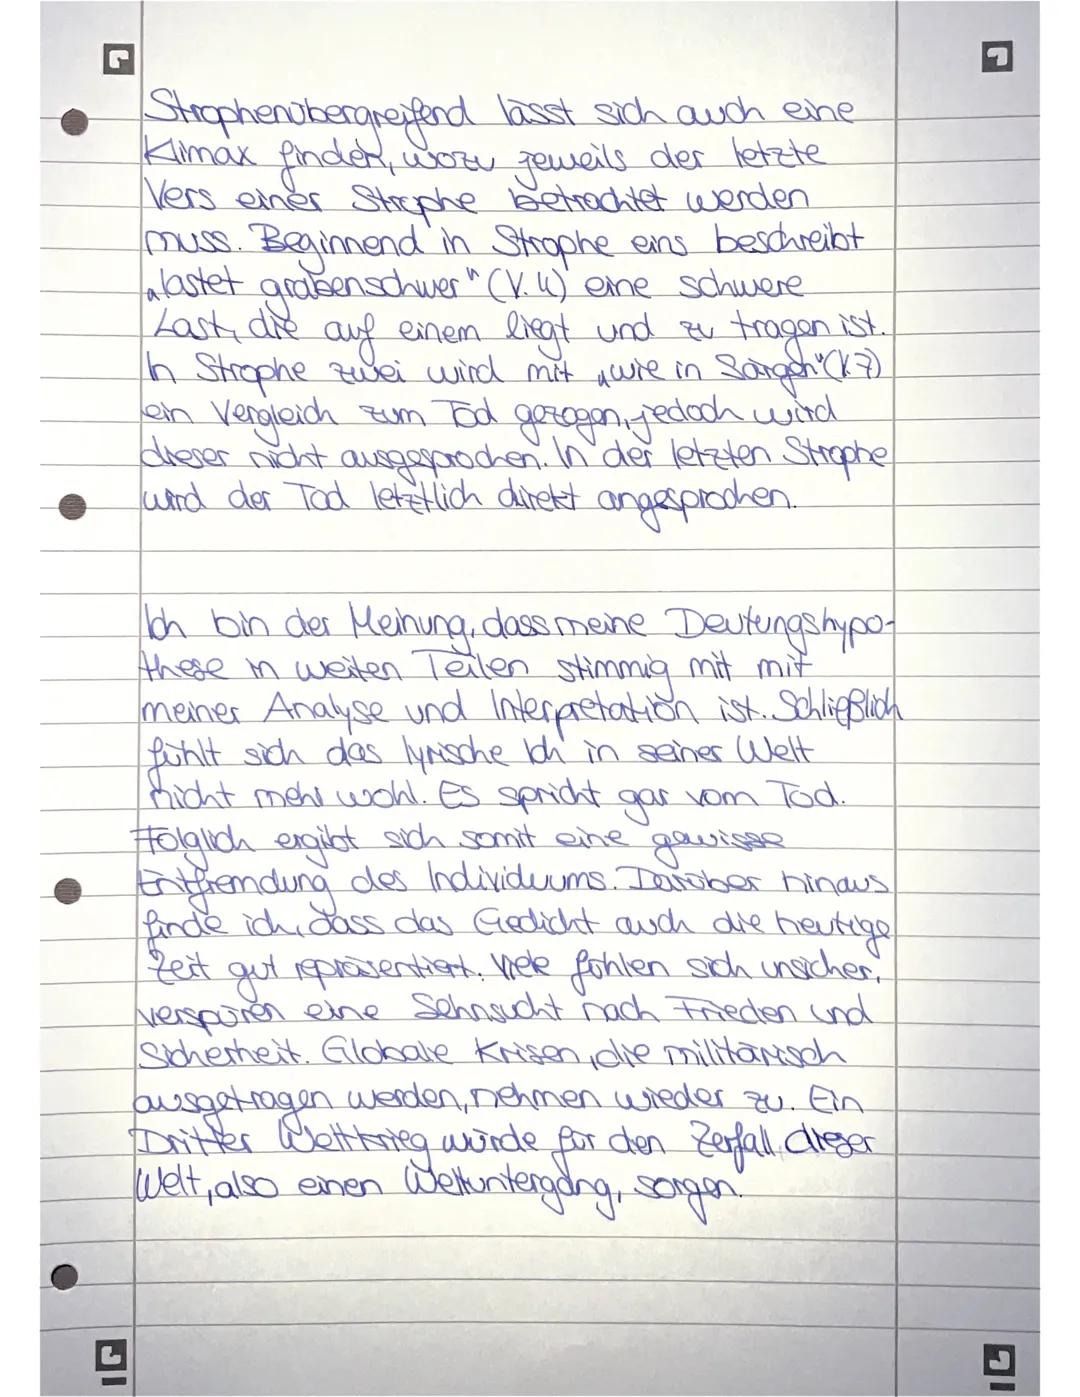 Strophenübergreifend lässt sich auch eine
Klimax finden, wozu jeweils der letzte
Vers einer Strophe betrachtet werden
muss. Beginnend in Strophe eins beschreibt
„lastet grabenschwer" (V. 4) eine schwere
Last, die auf einem liegt und zu tragen ist.
In Strophe zwei wird mit „wie in Särgen" (V. 7)
ein Vergleich zum Tod gezogen, jedoch wird
dieser nicht ausgesprochen. In der letzten Strophe
wird der Tod letztlich direkt angesprochen.
Ich bin der Meinung, dass meine Deutungshypo-
these in weiten Teilen stimmig mit mit
meiner Analyse und Interpretation ist. Schließlich
fühlt sich das lyrische Ich in seiner Welt
nicht mehr wohl. Es spricht gar vom Tod.
Folglich ergibt sich somit eine gewisse
Entfremdung des Individuums. Darüber hinaus
finde ich, dass das Gedicht auch die heutige
Zeit gut repräsentiert. Viele fühlen sich unsicher,
verspüren eine Sehnsucht nach Frieden und
Sicherheit. Globale Krisen, die militärisch
ausgetragen werden, nehmen wieder zu. Ein
Dritter Weltkrieg würde für den Zerfall dieser
Welt, also einen Weltuntergang, sorgen.